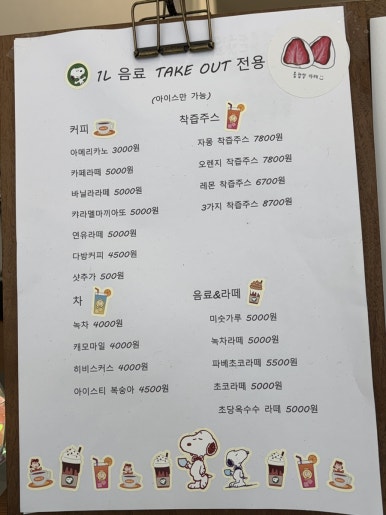 1L 음료 TAKE OUT 전용
(아이스만 가능)
커피
아메리카노 3000원
카페라떼 5000원
바닐라라떼 5000원
캬라멜마끼아또 5000원
연유라떼 5000원
다방커피 4500원
샷추가 500원
착즙주스
자몽 착즙주스 7800원
오렌지 착즙주스 7800원
레몬 착즙주스 6700원
3가지 착즙주스 8700원
차
녹차 4000원
캐모마일 4000원
히비스커스 4000원
아이스티 복숭아 4500원
음료&라떼
미숫가루 5000원
녹차라떼 5000원
파베초코라떼 5500원
초코라떼 5000원
초당옥수수 라떼 5000원